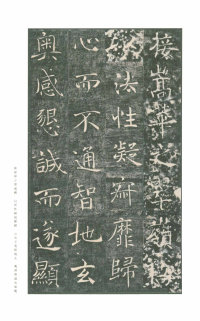 接嵩華之翠嶺竊
以法性凝寂靡歸
心而不通智地玄
奥感懇誠而遂顯